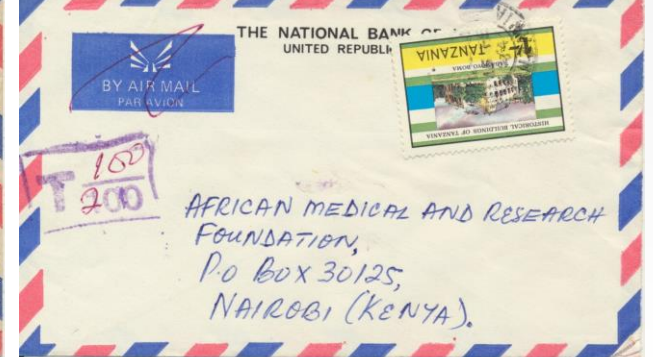 THE NATIONAL BANK
UNITED REPUBLI
BY AIR MAIL
PAR AVION
TANZANIA
HISTORICAL BUILDINGS OF TANZANIA
T 100
200
AFRICAN MEDICAL AND RESEARCH
FOUNDATION,
P.O BOX 30125,
NAIROBI (KENYA).